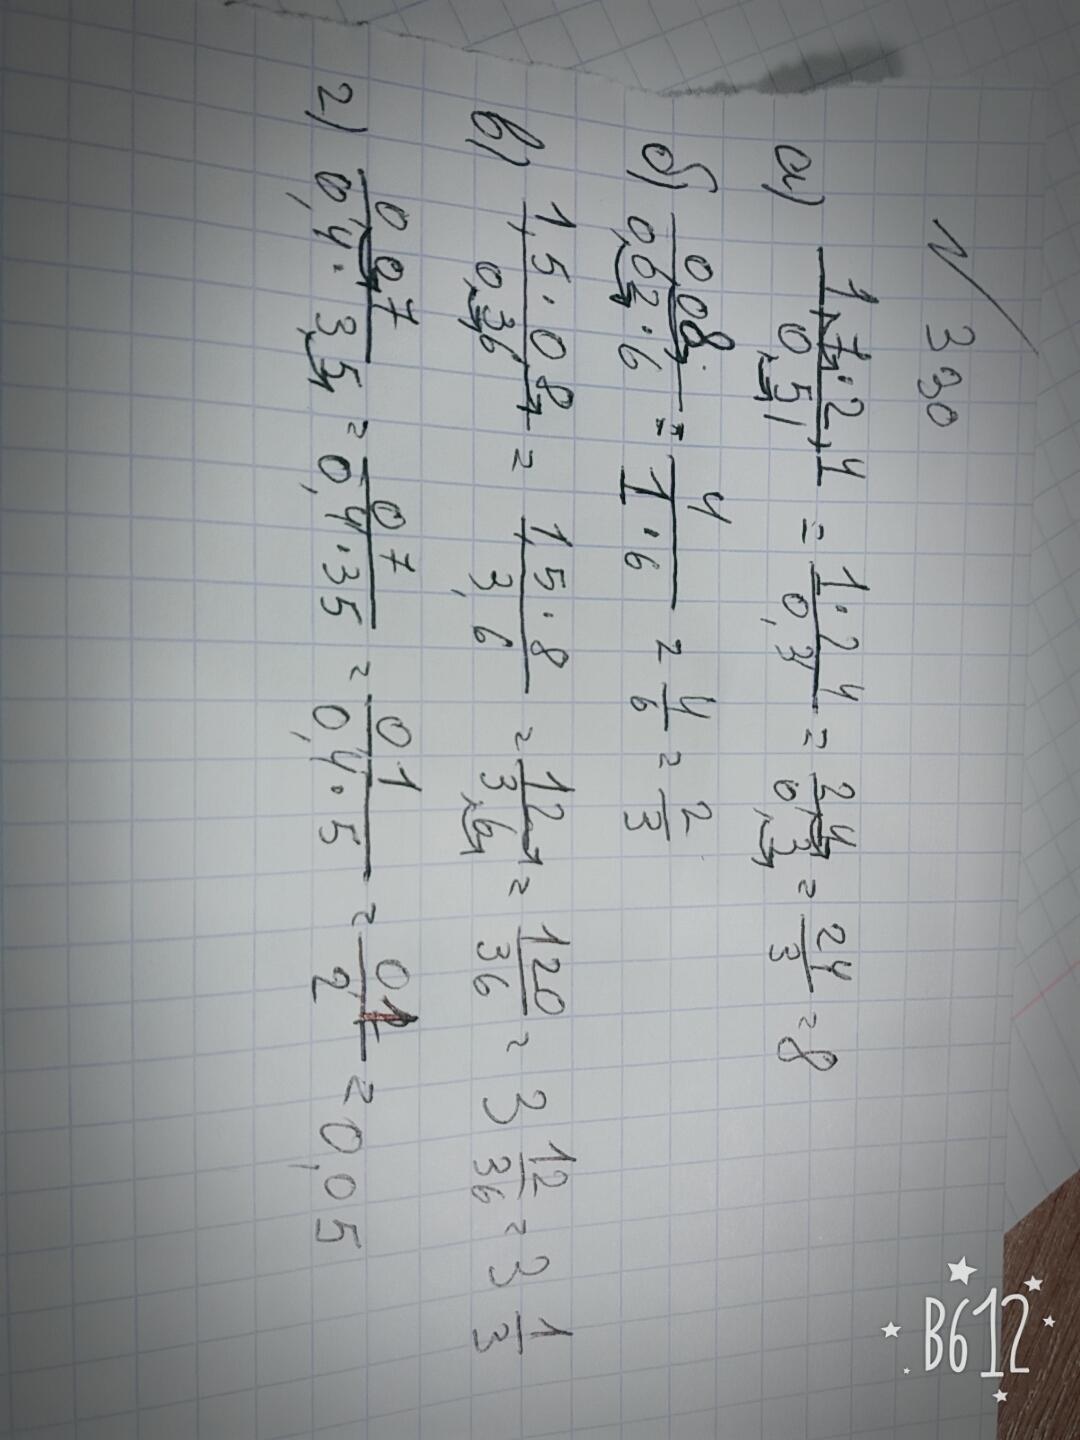 N 330
а) 1,7·2,4 / 0,51 = 1·2,4 / 0,3 = 2,4 / 0,3 = 24 / 3 = 8
б) 0,08 / 0,02·6 = 4 / 1·6 = 4/6 = 2/3
в) 1,5·0,8 / 0,36 = 1,5·8 / 3,6 = 12 / 3,6 = 120 / 36 = 3 12/36 = 3 1/3
г) 0,07 / 0,4·3,5 = 0,7 / 0,4·35 = 0,1 / 0,4·5 = 0,1 / 2 = 0,05
B612